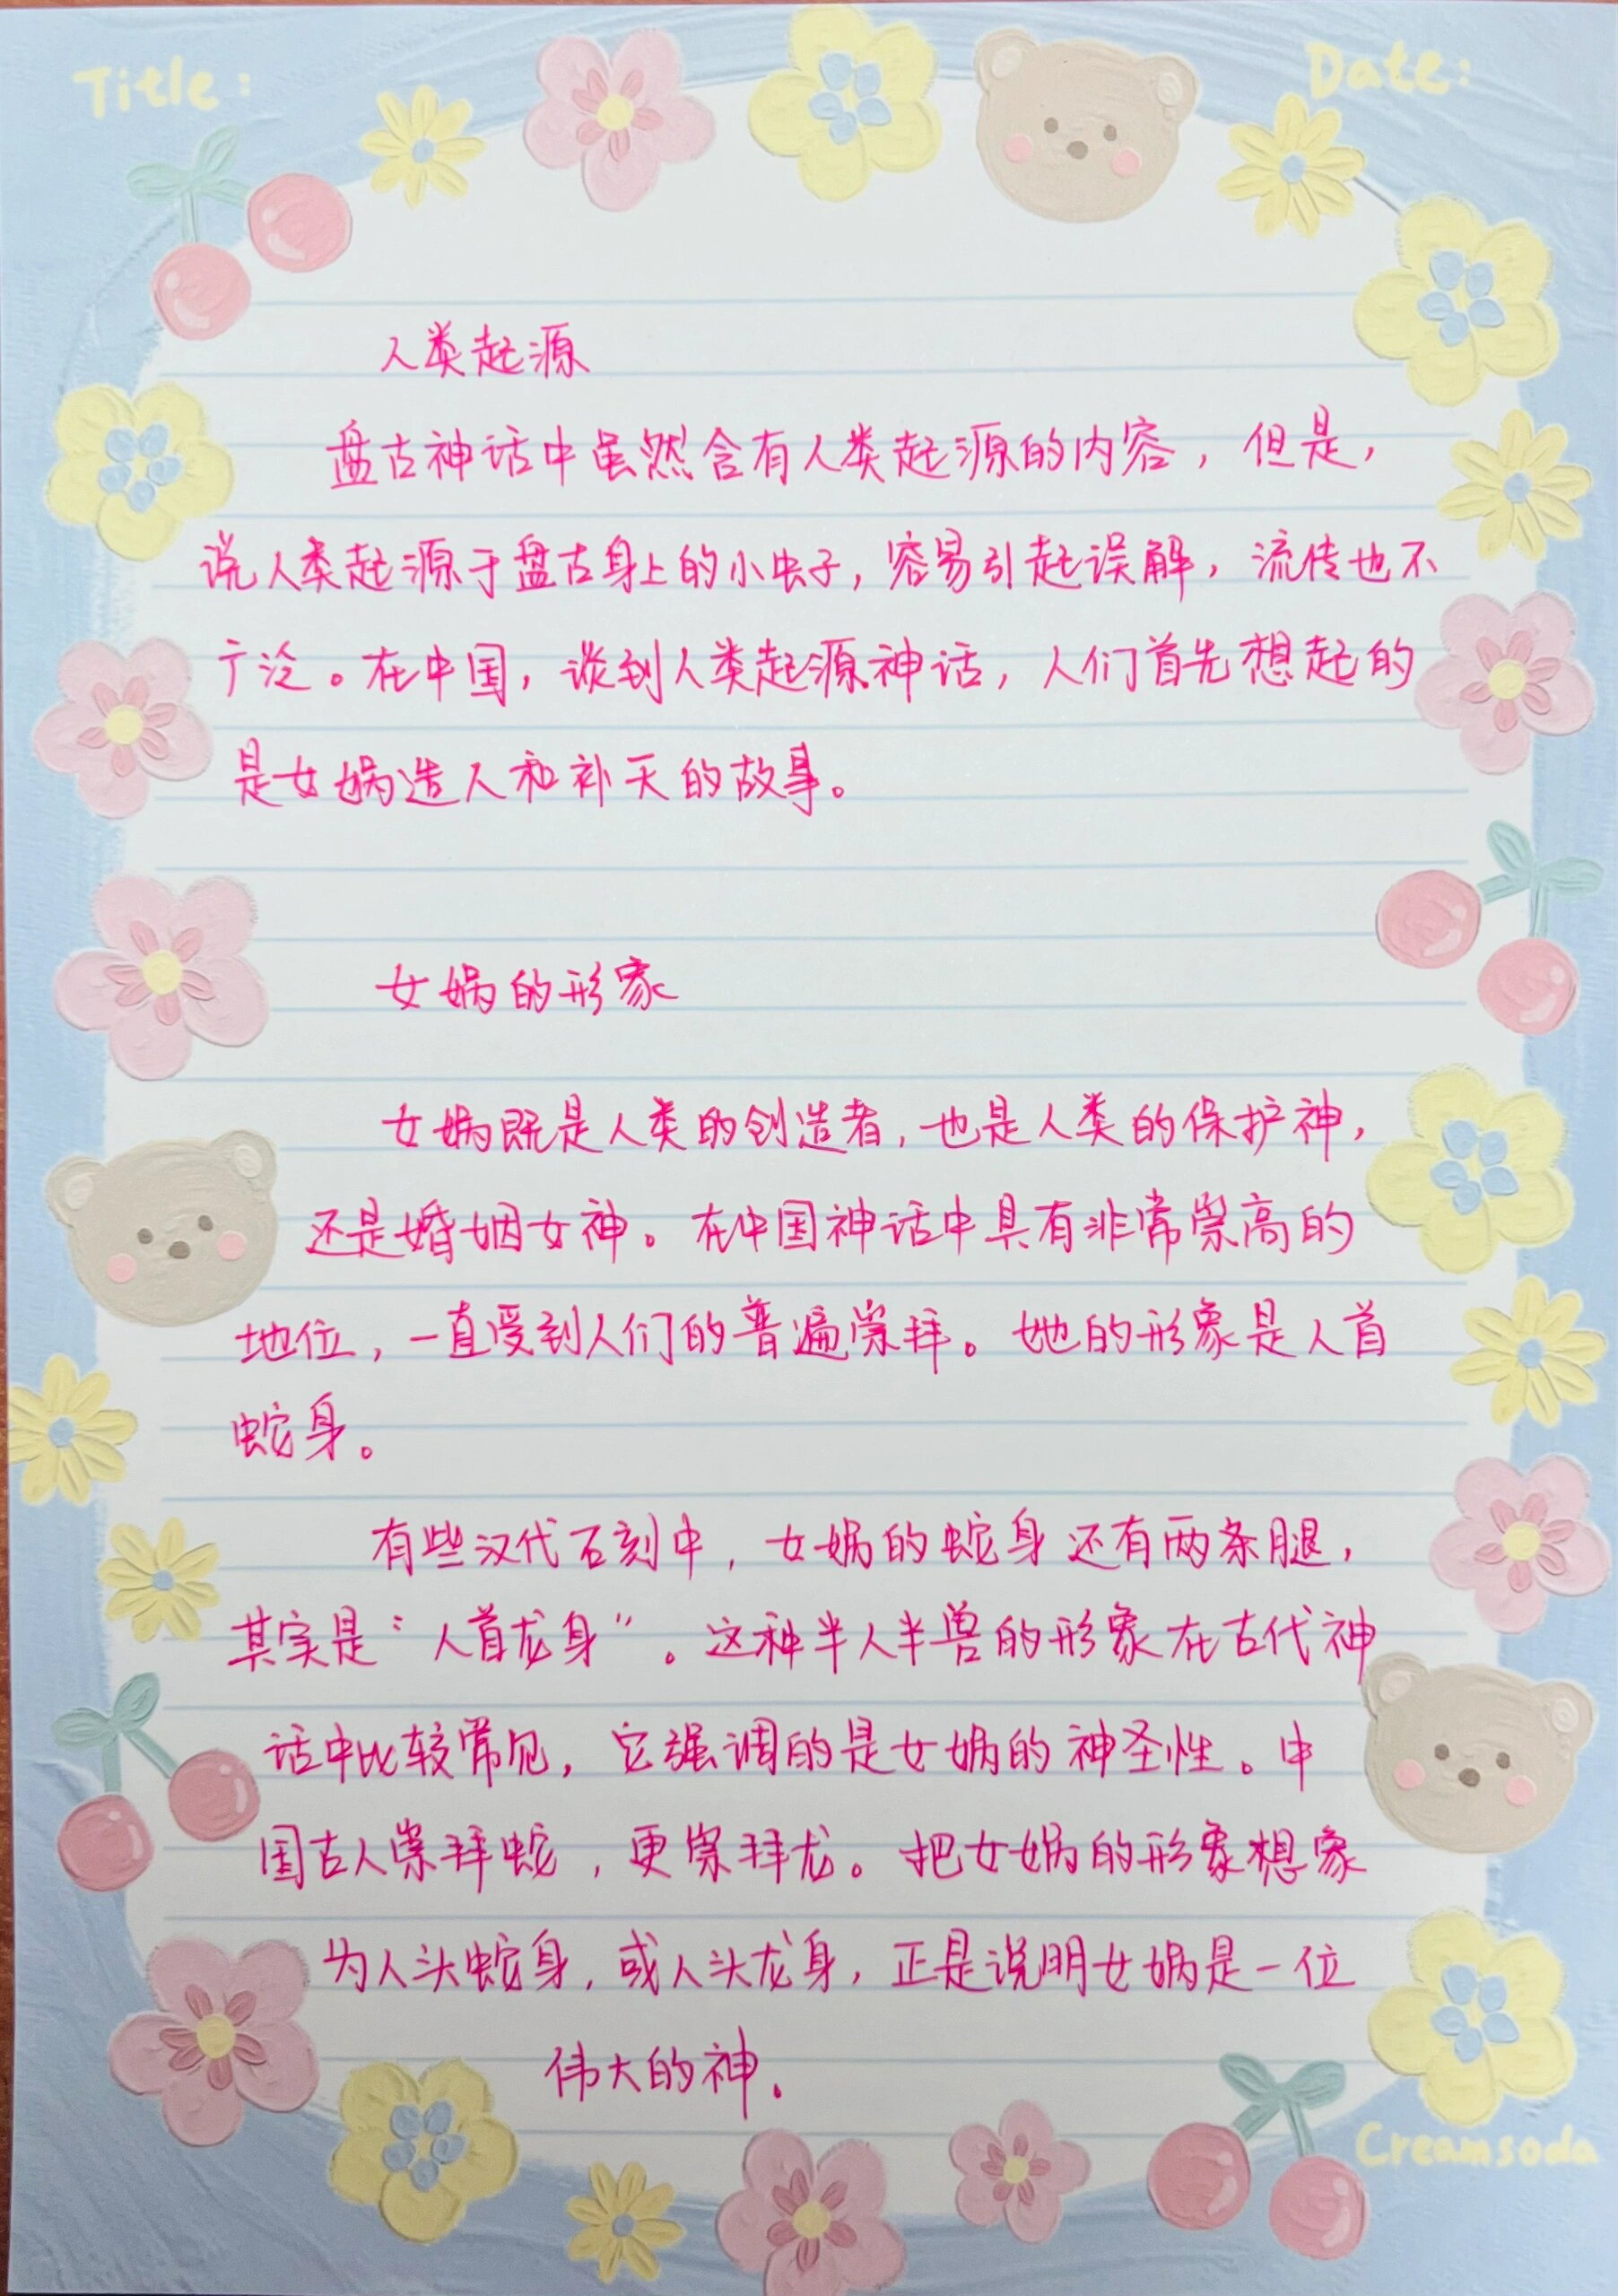 Title:
Date:
人类起源
盘古神话中虽然含有人类起源的内容，但是，
说人类起源于盘古身上的小虫子，容易引起误解，流传也不
广泛。在中国，谈到人类起源神话，人们首先想起的
是女娲造人和补天的故事。
女娲的形象
女娲既是人类的创造者，也是人类的保护神，
还是婚姻女神。在中国神话中具有非常崇高的
地位，一直受到人们的普遍崇拜。她的形象是人首
蛇身。
有些汉代石刻中，女娲的蛇身还有两条腿，
其实是“人首龙身”。这种半人半兽的形象在古代神
话中比较常见，它强调的是女娲的神圣性。中
国古人崇拜蛇，更崇拜龙。把女娲的形象想象
为人头蛇身，或人头龙身，正是说明女娲是一位
伟大的神。
Creamsoda